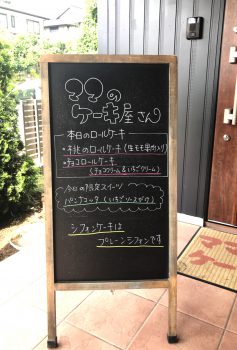 ママの
ケーキ屋さん
本日のロールケーキ
・桃のロールケーキ(生モモ果肉入り)
・チョコロールケーキ
(チョコクリーム&いちごクリーム)
今日の限定スイーツ
パンナコッタ(いちごソースがけ)
シフォンケーキは
プレーンシフォンです
ママの
ケー